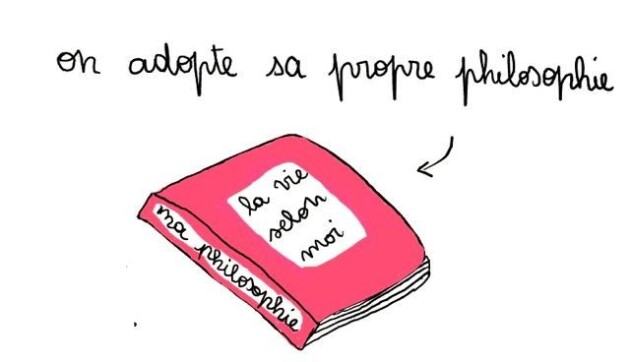 on adopte sa propre philosophie
la vie
selon
moi
ma philosophie